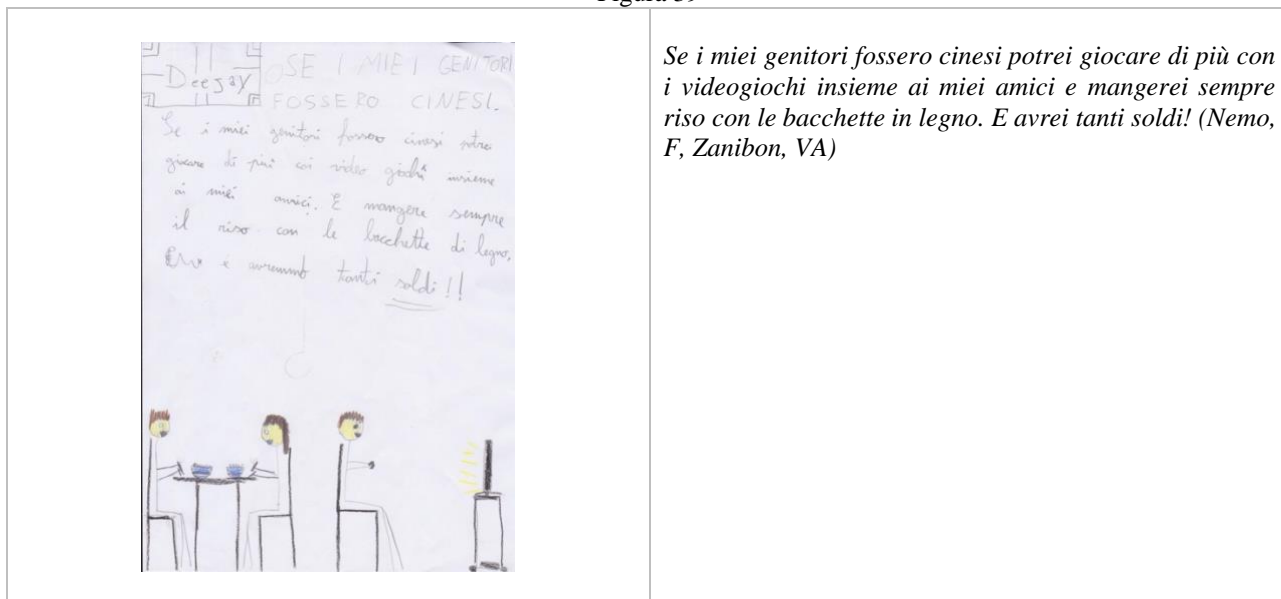 Deejay
SE I MIEI GENITORI
FOSSERO CINESI.
Se i miei genitori fossero cinesi potrei
giocare di più coi video giochi insieme
ai miei amici. E mangere sempre
il riso con le bacchette di legno.
e avremmo tanti soldi!!
Se i miei genitori fossero cinesi potrei giocare di più con
i videogiochi insieme ai miei amici e mangerei sempre
riso con le bacchette in legno. E avrei tanti soldi! (Nemo,
F, Zanibon, VA)